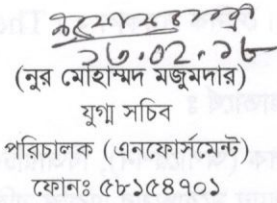 ১৬.০১.১৮
(নুর মোহাম্মদ মজুমদার)
যুগ্ম সচিব
পরিচালক (এনফোর্সমেন্ট)
ফোনঃ ৫৮১৫৪৭০১